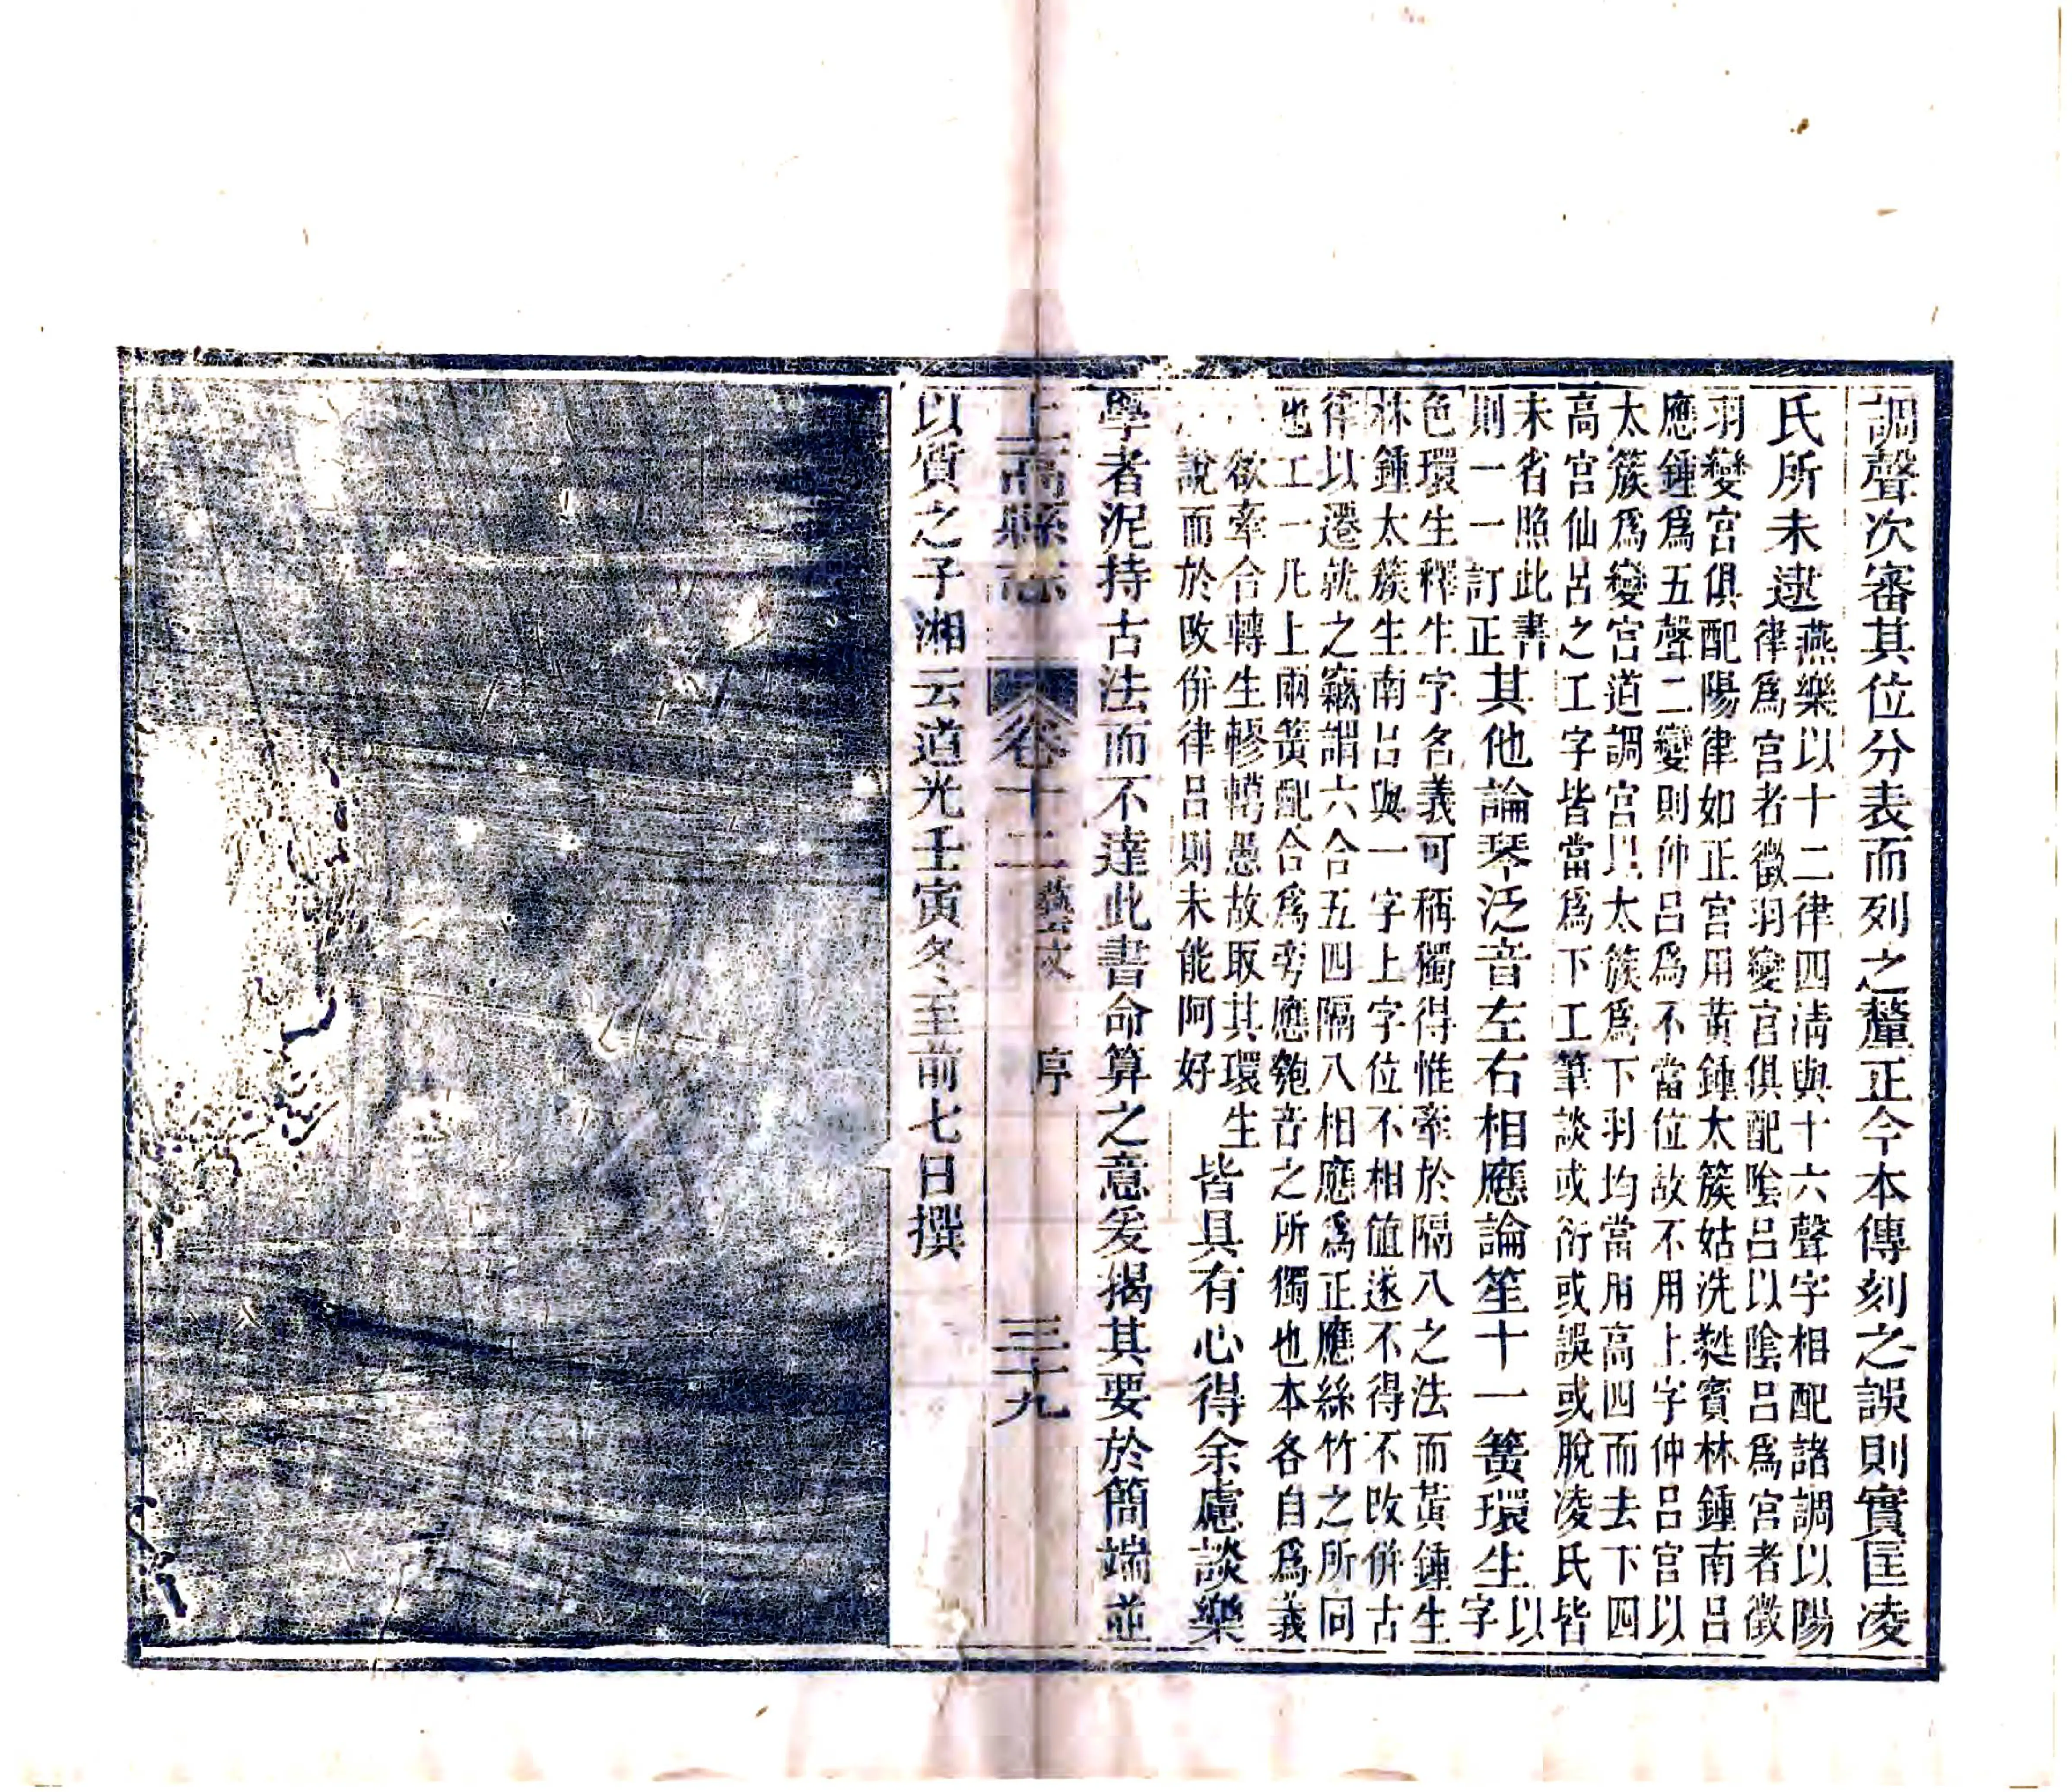 調聲次審其位分表而列之釐正今本傳刻之誤則實匡凌
氏所未逮
燕樂以十二律四清與十六聲字相配諸調以陽
律爲宮者徵羽變宮俱配陰呂以陰呂爲宮者徵
羽變宮俱配陽律如正宮用黃鍾太簇姑洗蕤賓林鍾南呂
應鍾爲五聲二變則仲呂爲不當位故不用上字仲呂宮以
太簇爲變宮道調宮以太簇爲下羽均當用高四而去下四
高宮仙呂之工字皆當爲下工筆談或衍或誤或脫凌氏皆
未省照此書
則一一訂正
其他論琴泛音左右相應論笙十一簧環生
以
字
色環生釋生字名義可稱獨得惟牽於隔八之法而黃鍾生
林鍾太簇生南呂與一字上字位不相値遂不得不改併古
律以遷就之竊謂六合五四隔八相應爲正應絲竹之所同
也工一凡上兩簧配合爲旁應匏音之所獨也本各自爲義
欲牽合轉生轇轕愚故取其環生
說而於改併律呂則未能阿好
皆具有心得余慮談樂
學者泥持古法而不達此書命算之意爰揭其要於簡端並
上高縣志 卷十二 藝文 序 三十九
以質之子湘云道光壬寅冬至前七日撰